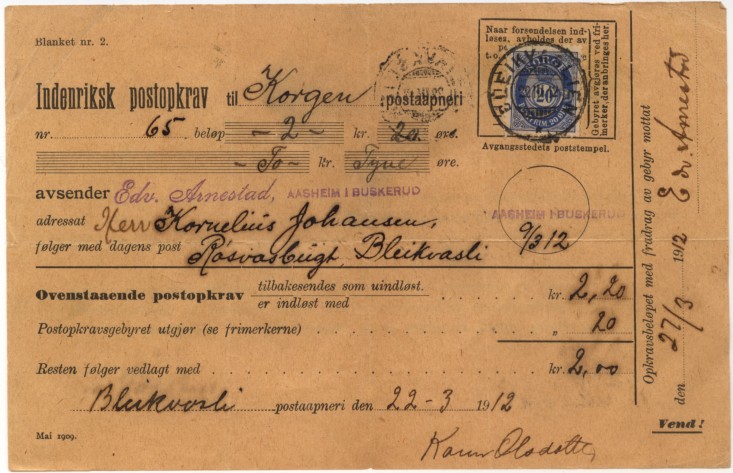 Blanket nr. 2.
Naar forsendelsen ind-
løses, avholdes der av
Indenriksk postopkrav til Korgen postaapneri
nr. 65 beløp - 2 - kr. 20. øre.
- To - kr. Tyve øre.
Avgangsstedets poststempel.
avsender Edv. Arnestad, AASHEIM I BUSKERUD
adressat Herr Kornelius Johansen,
AASHEIM I BUSKERUD
9/3 12
følger med dagens post Røsvasbugt, Bleikvasli
Ovenstaaende postopkrav tilbakesendes som uindløst.
er indløst med kr. 2,20
Postopkravsgebyret utgjør (se frimerkerne) " 20
Resten følger vedlagt med kr. 2,00
Bleikvasli postaapneri den 22-3 1912
Mai 1909.
Karen
Vend!
Gebyret avgjøres ved fri-
merker, der anbringes her.
20
Opkravsbeløpet med fradrag av gebyr mottat
den 27/3 1912 Edv. Arnestad